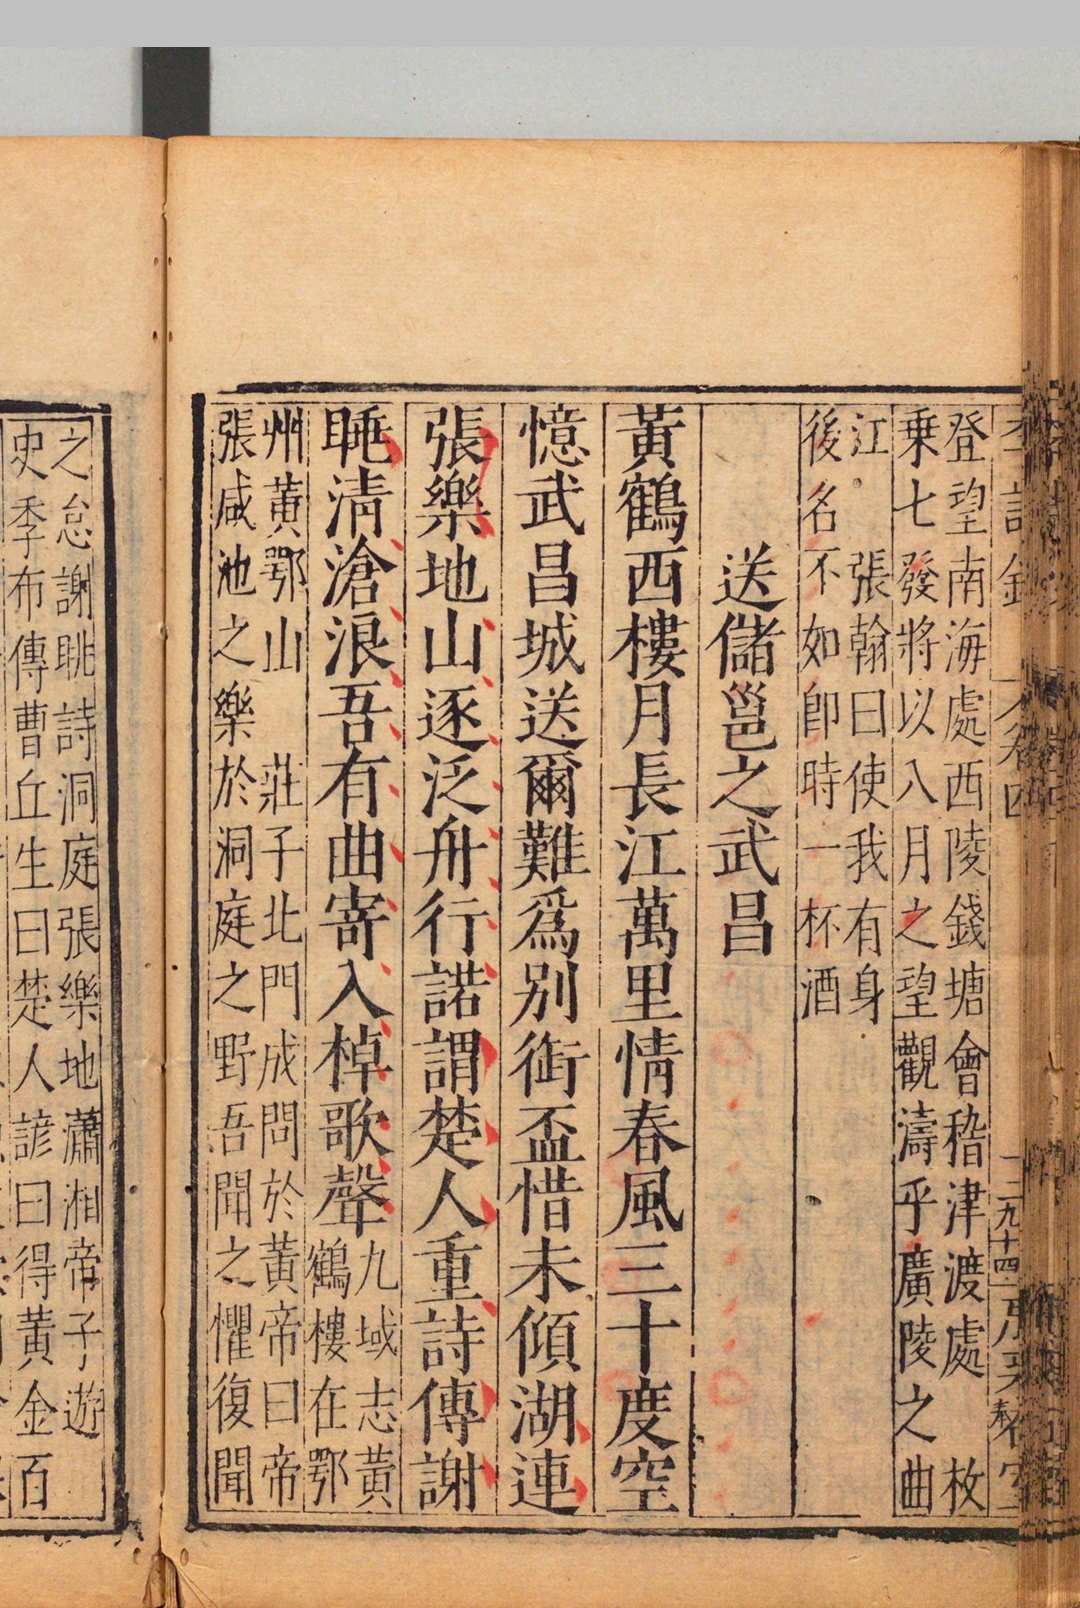 登望南海處西陵錢塘會稽津渡處　枚
乗七發將以八月之望觀濤乎廣陵之曲
江　張翰曰使我有身
後名不如卽時一杯酒
送儲邕之武昌
黃鶴西樓月長江萬里情春風三十度空
憶武昌城送爾難爲別銜盃惜未傾湖連
張樂地山逐泛舟行諾謂楚人重詩傳謝
朓淸滄浪吾有曲寄入棹歌聲
九域志黃
鶴樓在鄂
州黃鄂山　莊子北門成問於黃帝曰帝
張咸池之樂於洞庭之野吾聞之懼復聞
之怠謝眺詩洞庭張樂地瀟湘帝子遊
史季布傳曹丘生曰楚人諺曰得黃金百